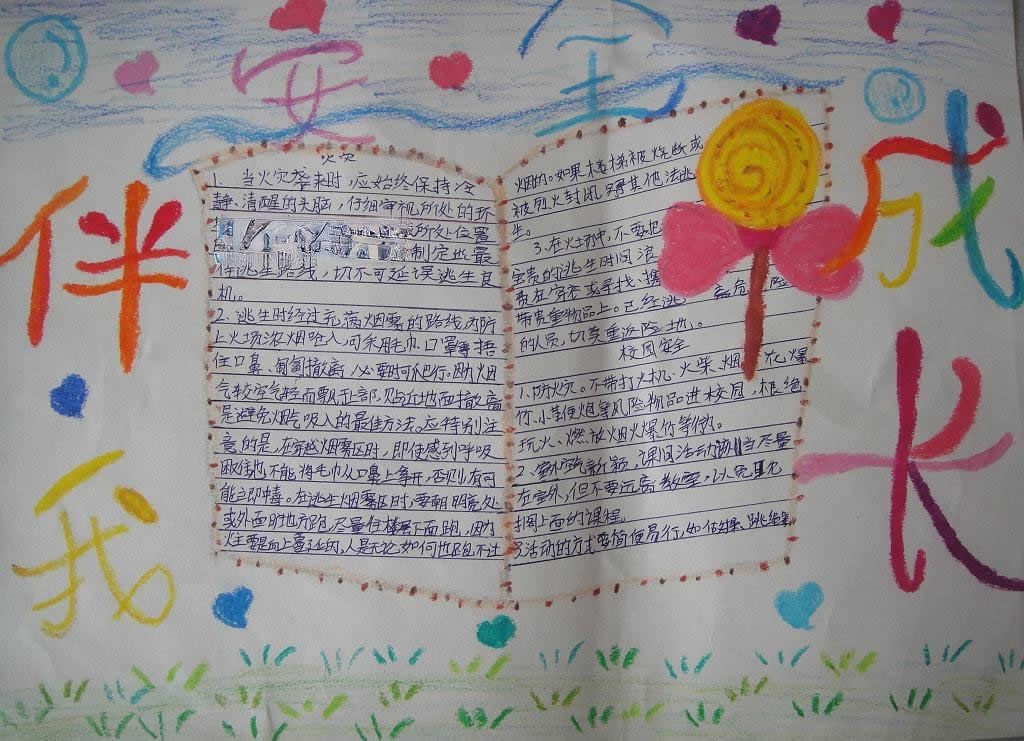 安全
伴我
成长
火灾
1、当火灾袭来时,应始终保持冷
静、清醒的头脑,仔细审视所处的环
所处位置
制定地最
佳逃生路线,切不可延误逃生良
机。
2、逃生时经过充满烟雾的路线,为防
止火场浓烟吸入,可采用毛巾、口罩等捂
住口鼻,匍匐撤离,必要时可爬行。因为烟
气较空气轻而飘于上部,贴近地面撤离
是避免烟气吸入的最佳方法。应特别注
意的是,在穿越烟雾区时,即使感到呼吸
困难也不能将毛巾从口鼻上拿开,否则有可
能立即中毒。在逃生烟雾区时,要朝明亮处
或外面的地方跑,尽量往楼下面跑,因为
火主要是向上蔓延的,人是无论如何也跑不过
烟的。如果楼梯被烧断或
被烈火封闭,
生。
3、在火场中,不要把
宝贵的逃生时间浪
费在穿衣或寻找、携
带贵重物品上。已经逃 离危险
的人员,切莫重返险地。
校园安全
1、防火灾。不带打火机、火柴、烟花爆
竹、小 等风险物品进校园,根绝
玩火、燃放烟火爆竹等 。
2、 新颖,课间活动 当尽量
在室外,但不要远离教室,以免
扰 上面的课程。
活动的方式要简便易行,如做操、跳绳